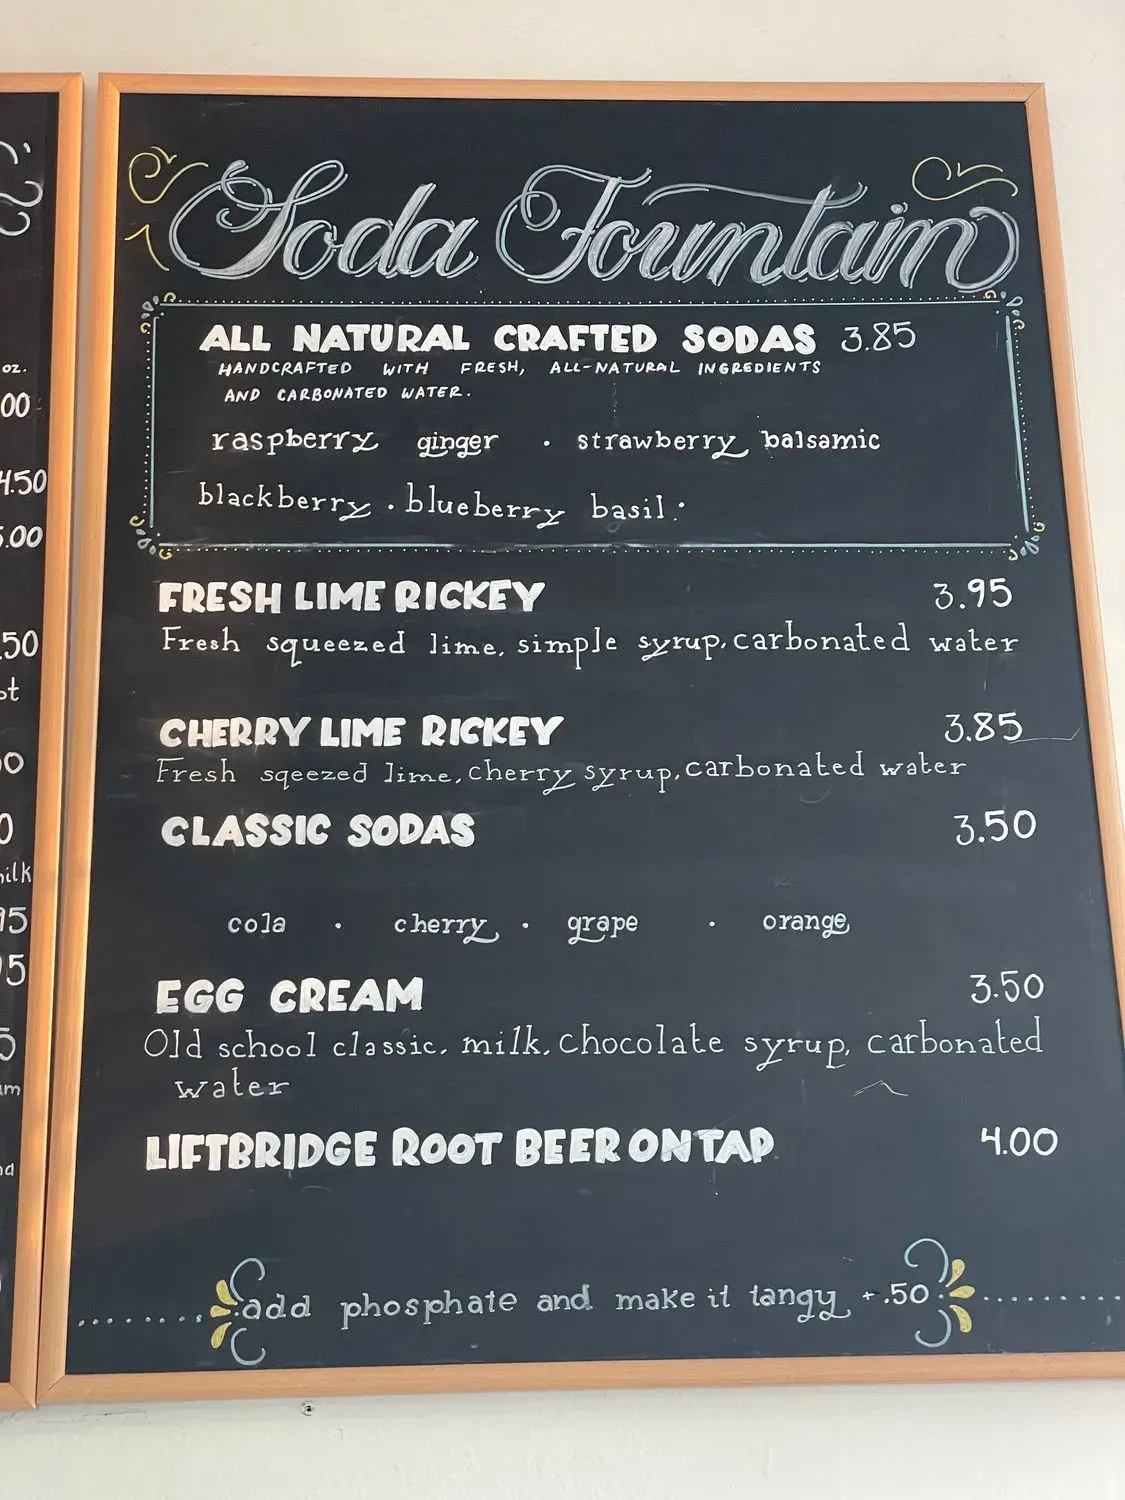 Soda Fountain
ALL NATURAL CRAFTED SODAS 3.85
HANDCRAFTED WITH FRESH, ALL-NATURAL INGREDIENTS
AND CARBONATED WATER.
raspberry ginger · strawberry balsamic
blackberry · blueberry basil ·
FRESH LIME RICKEY 3.95
Fresh squeezed lime, simple syrup, carbonated water
CHERRY LIME RICKEY 3.85
Fresh sqeezed lime, cherry syrup, carbonated water
CLASSIC SODAS 3.50
cola · cherry · grape · orange
EGG CREAM 3.50
Old school classic. milk, chocolate syrup, carbonated
water
LIFTBRIDGE ROOT BEER ON TAP 4.00
add phosphate and make it tangy + .50
oz.
00
4.50
.00
.50